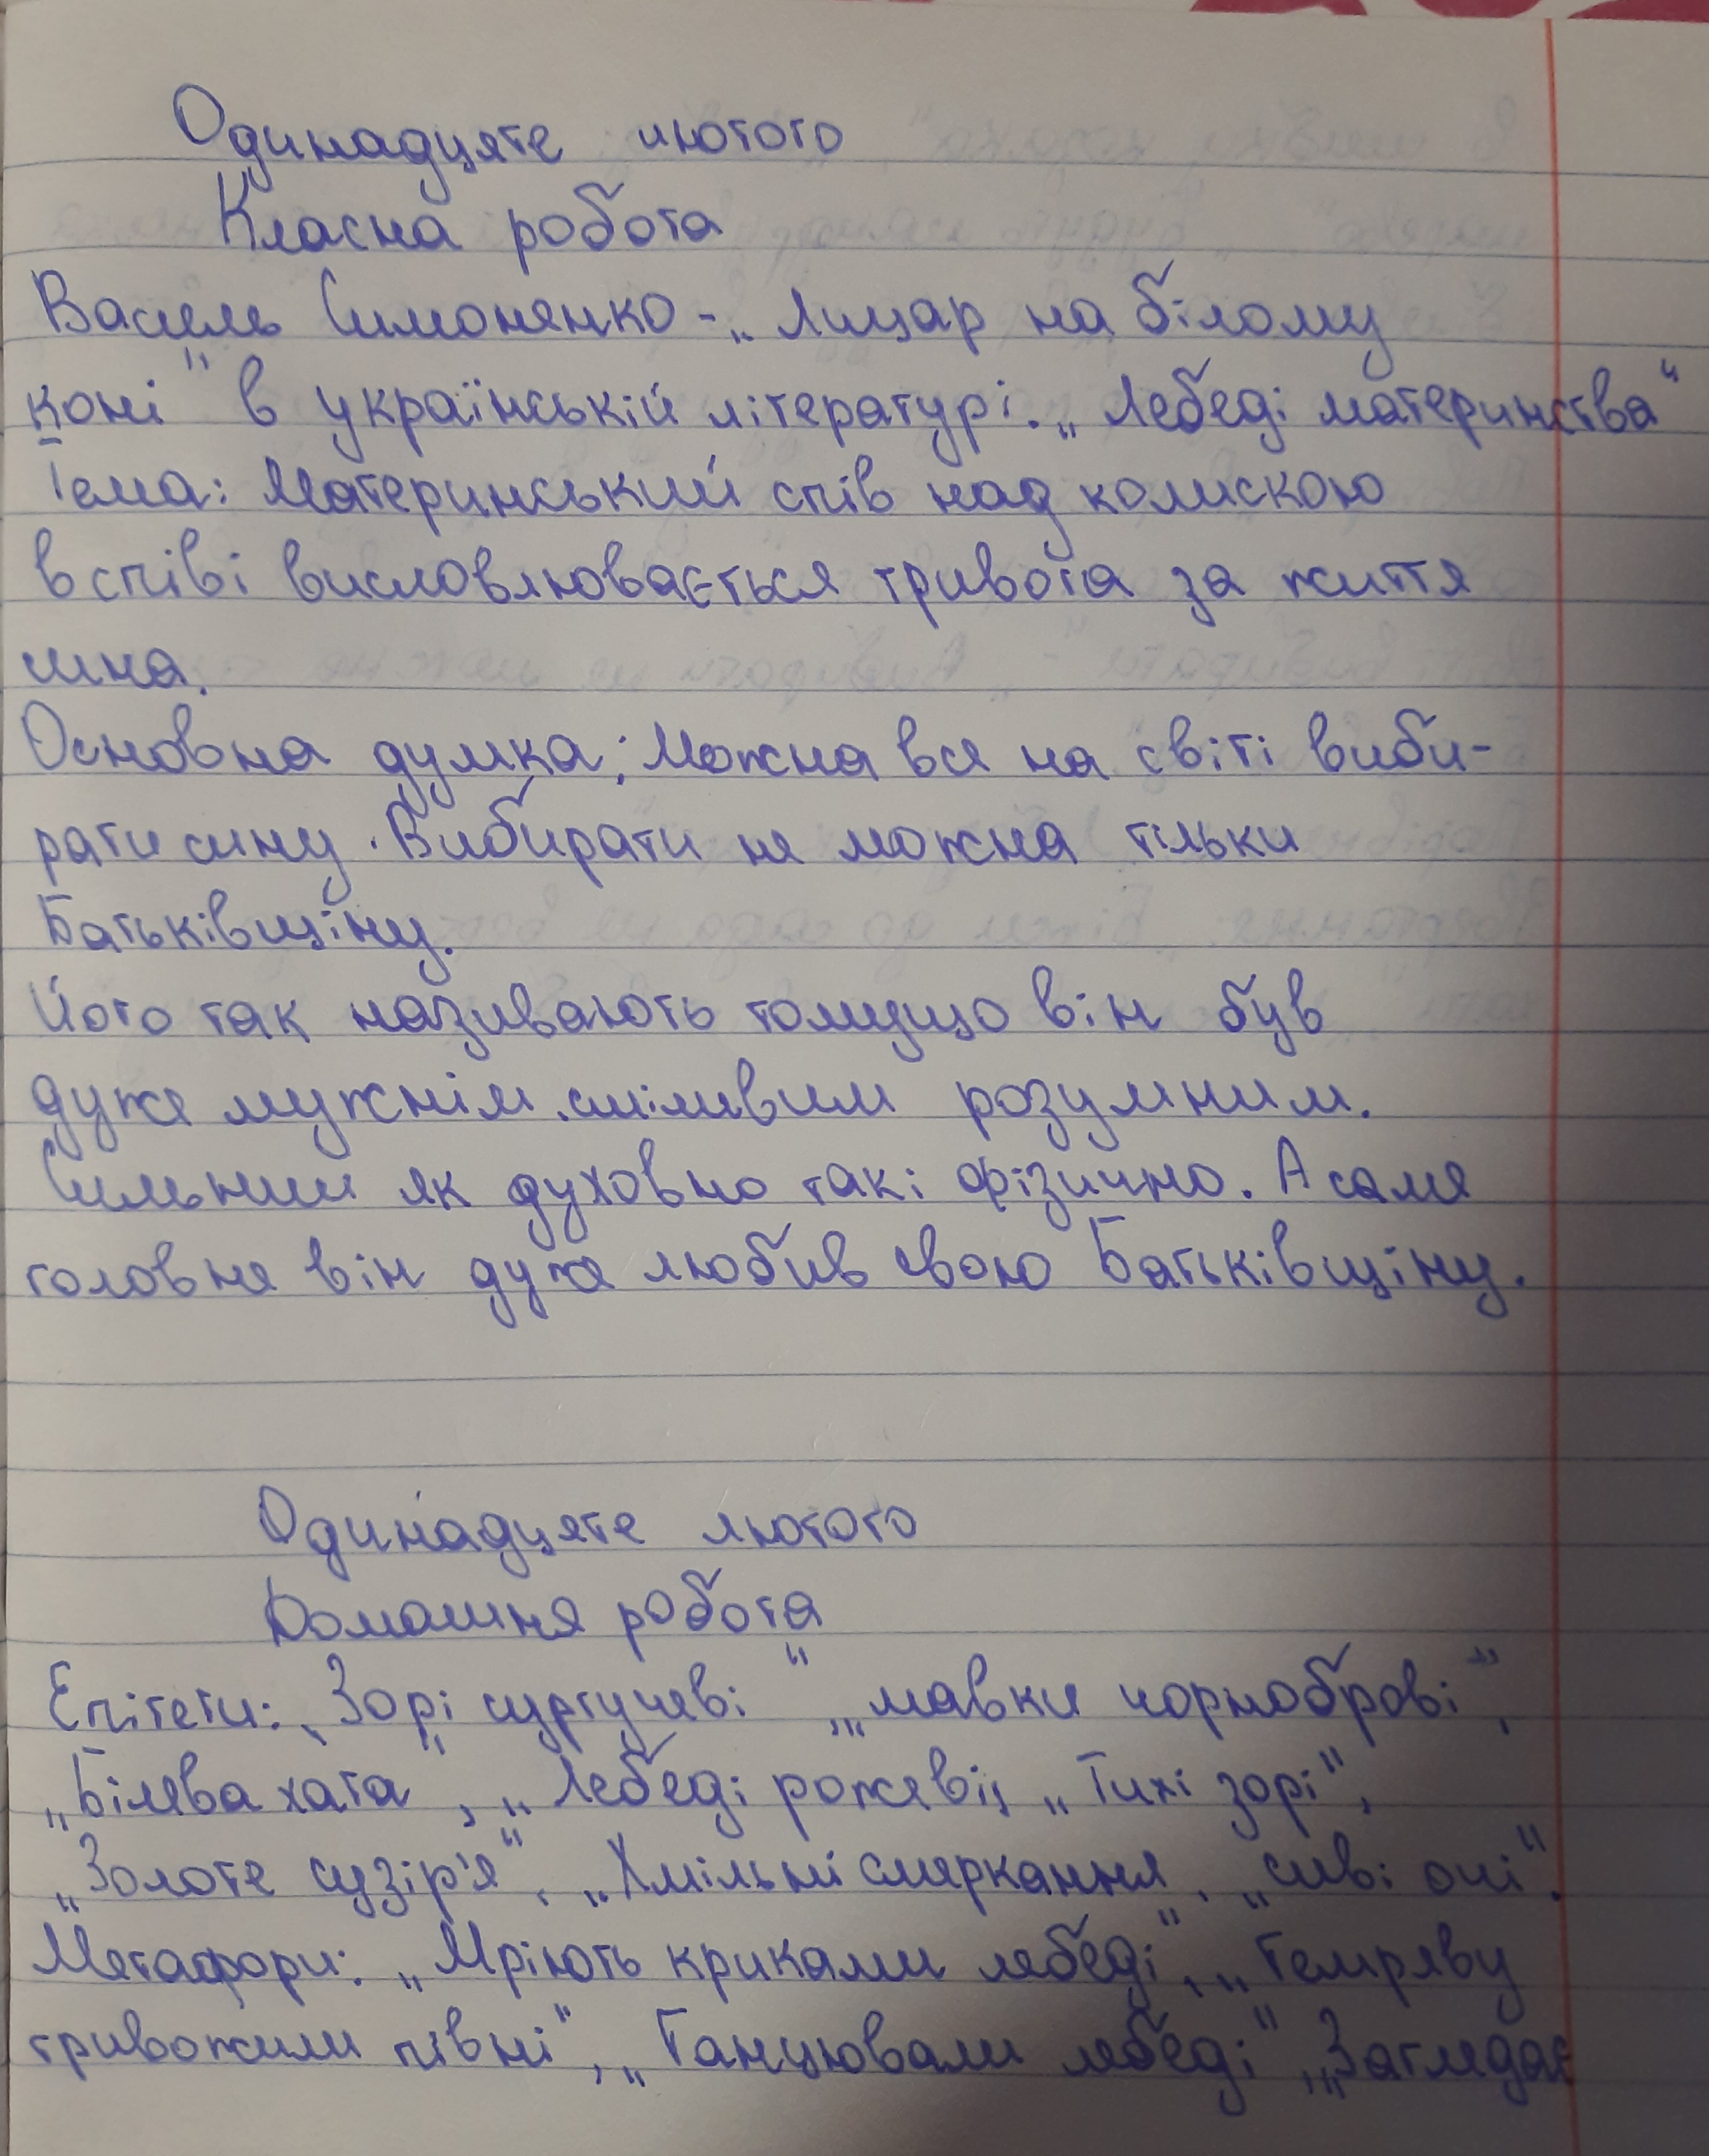 Одинадцяте лютого
Класна робота
Василь Симоненко - „Лицар на білому
коні" в українській літературі. „Лебеді материнства"
Тема: Материнський спів над колискою
в співі висловлювається тривога за життя
сина.
Основна думка: Можна все на світі виби-
рати сину. Вибирати не можна тільки
Батьківщіну.
Його так називають томущо він був
дуже мужнім. сміливим розумним.
Сильним як духовно такі фізично. А саме
головне він дуже любив свою Батьківщіну.
Одинадцяте лютого
Домашня робота
Епітети: „Зорі сургучеві", „мавки чорноброві",
„Білява хата", „Лебеді рожеві", „Тихі зорі",
„Золоте сузір'я", „Хмільні смеркання, „сиві очі".
Метафори: „Мріють крилами лебеді", „Темряву
тривожили півні", „Танцювали лебеді", „Заглядає